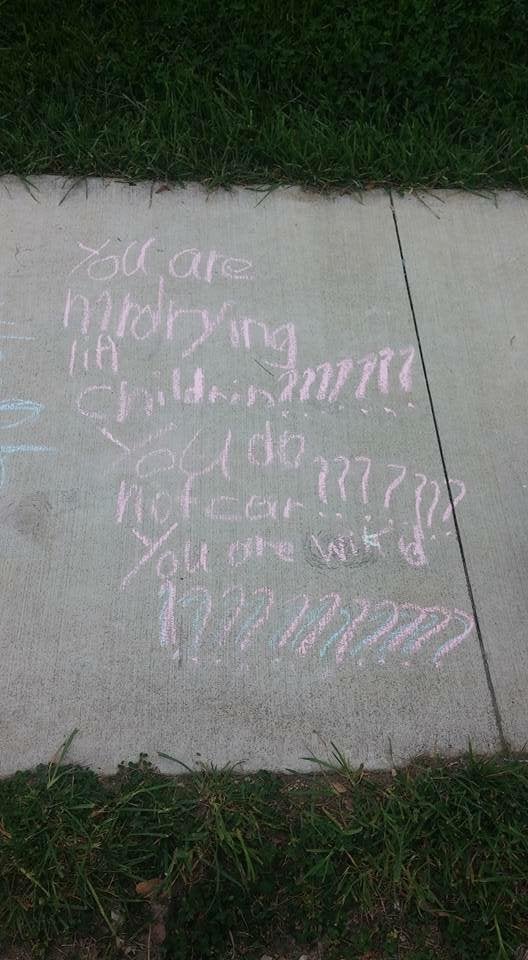 You are
mrdrying
childrin???????
You do
not car ???????
You are wikid
???????????